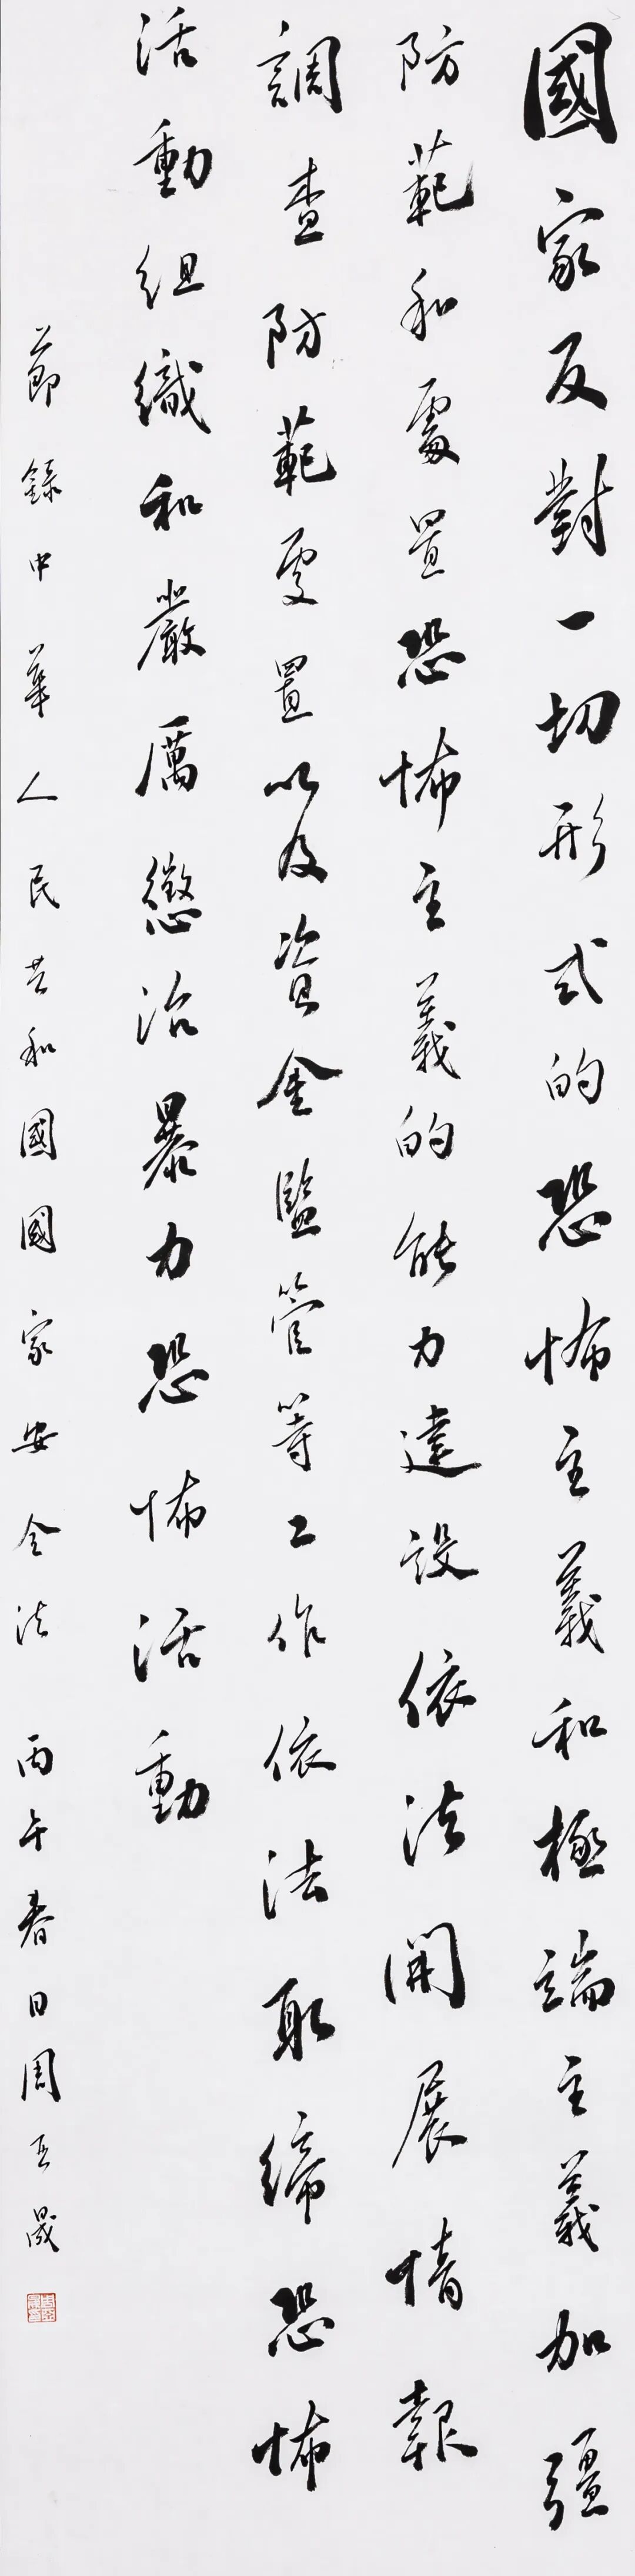 國家反對一切形式的恐怖主義和極端主義加彊
防範和處置恐怖主義的能力建設依法開展情報
調查防範處置以及資金監管等工作依法取締恐怖
活動組織和嚴厲懲治暴力恐怖活動
節錄中華人民共和國國家安全法 丙午春日周亙晟